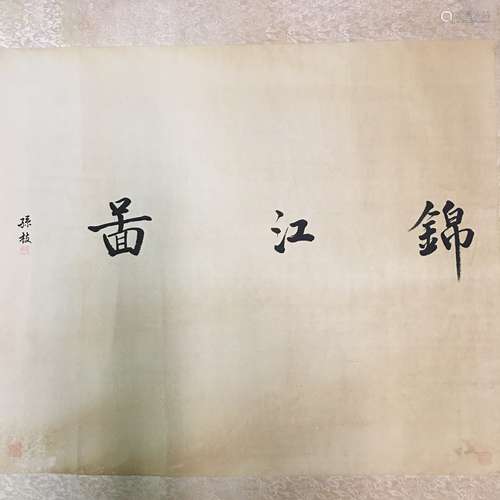 錦江啚
孫枝